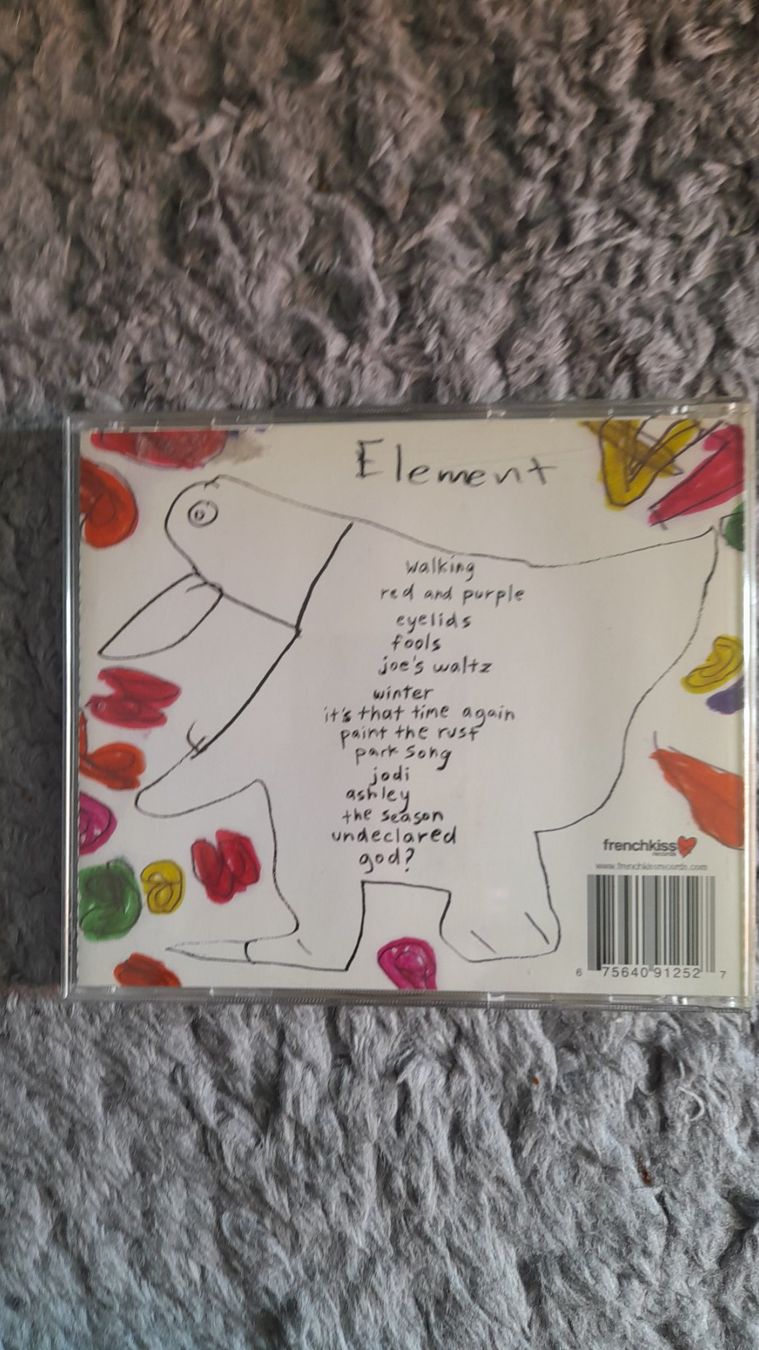 Element
walking
red and purple
eyelids
fools
joe's waltz
winter
it's that time again
paint the rust
park song
jodi
ashley
the season
undeclared
god?
frenchkiss
records
www.frenchkissrecords.com
6 75640 91252 7